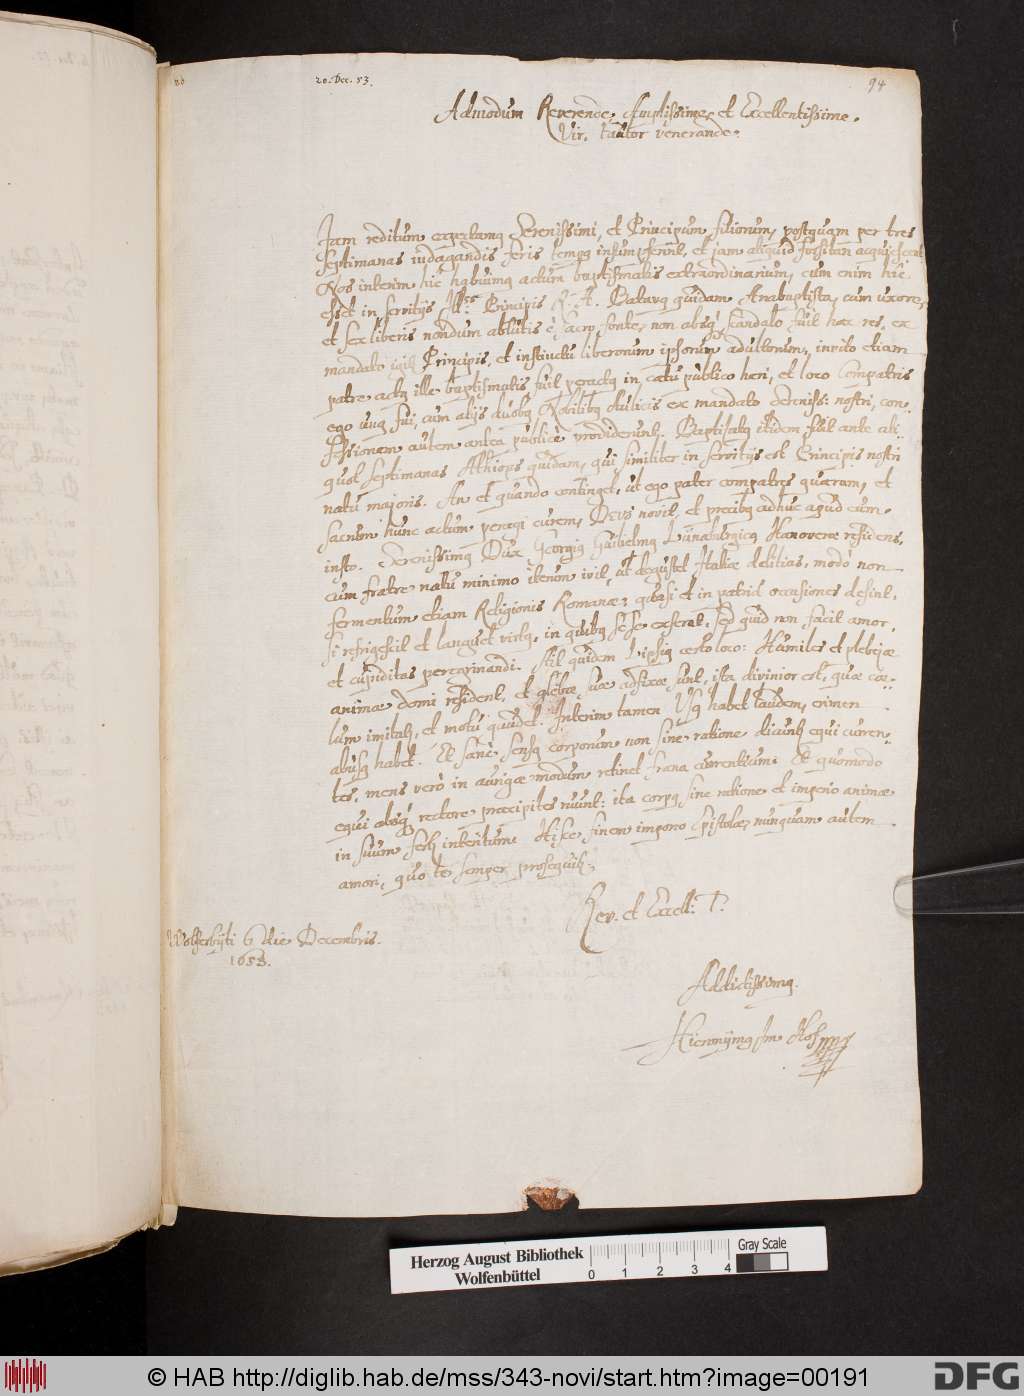 20. Dec. 53.
94
Admodum Reverende, Amplissime, et Excellentissime
Vir, Fautor venerande.
Jam reditum expectamq Serenissimi, et Principum filiorum, postquam per tres
septimanas indagandis feris tempq insumpserunt, et jam aliquid forsitan acquiescent.
Nos interim hic habuimq actum baptismalis extraordinarium, cum enim hic
esset in servitijs Principis R. A. Batavq quidam Anabaptista, cum uxore,
et sex liberis nondum ablutis è sacro fonte, non absq scandalo fuit hæc res, ex
mandato Principis, et instinctu liberorum ipsorum adultorum, invito etiam
patre actq ille baptismatis fuit peractq in cœtu publico heri, et loco Compatris
ego unq fui, cum alijs duobq Nobilibq Aulicis ex mandato Sereniss: nostri, con-
fessionem autem antea publicè prodiderunt. Baptisatq itidem fuit ante ali-
quot septimanas Æthiops quidam, qui similiter in servitijs est Principis nostri
natu majoris. An et quando continget, ut ego pater compatres quæram, et
sacrum hunc actum peragi curem, Deus novit, et precibq adhuc apud eum
insto. Serenissimq Dux Georgiq Guilielmq Lunæburgicq Hanoveræ residens,
cum fratre natu minimo iterum ivit, ut degustet Italiæ delitias, modò non
fermentum etiam Religionis Romanæ; quasi et in patriâ occasiones desint,
si refrigescit et languet virtq, in quibq sese exserat, sed quid non facit amor,
et cupiditas peregrinandi. Ait quidem Lipsiq certo loco: Humiles et plebejæ
animæ domi resident, et glebæ suæ adfixæ sunt, ista divinior est, quæ cœ-
lum imitatq, et motu gaudet. Interim tamen Usq habet laudem, crimen
abusq habet. Et sanè sensq corporum non sine ratione dicuntq equi curren-
tes, mens verò in aurigæ modum retinet fræna currentium. Et quomodo
equi absq rectore præcipites ruunt: ita corpq sine ratione et imperio animæ
in suum fertq interitum. Hisce finem impono Epistolæ, nunquam autem
amori, quo te semper prosequutq.
Rev. et Excell: T.
Wolferbyti 6 die Decembris.
1653.
Addictissimq
Hieronymq Im Hof
Herzog August Bibliothek
Wolfenbüttel
0 1 2 3 4
Gray Scale
© HAB http://diglib.hab.de/mss/343-novi/start.htm?image=00191
DFG